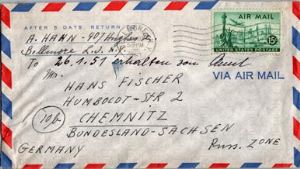 AFTER 5 DAYS, RETURN TO
A. HAHN - 901 Hughes St.
Bellmore L.I. N.Y.
AIR MAIL
UNITED STATES POSTAGE
15¢
To 26.1.51 erhalten von
VIA AIR MAIL
HANS FISCHER
HUMBOLDT-STR 2
CHEMNITZ
10b
BUNDESLAND-SACHSEN
GERMANY
Russ. ZONE